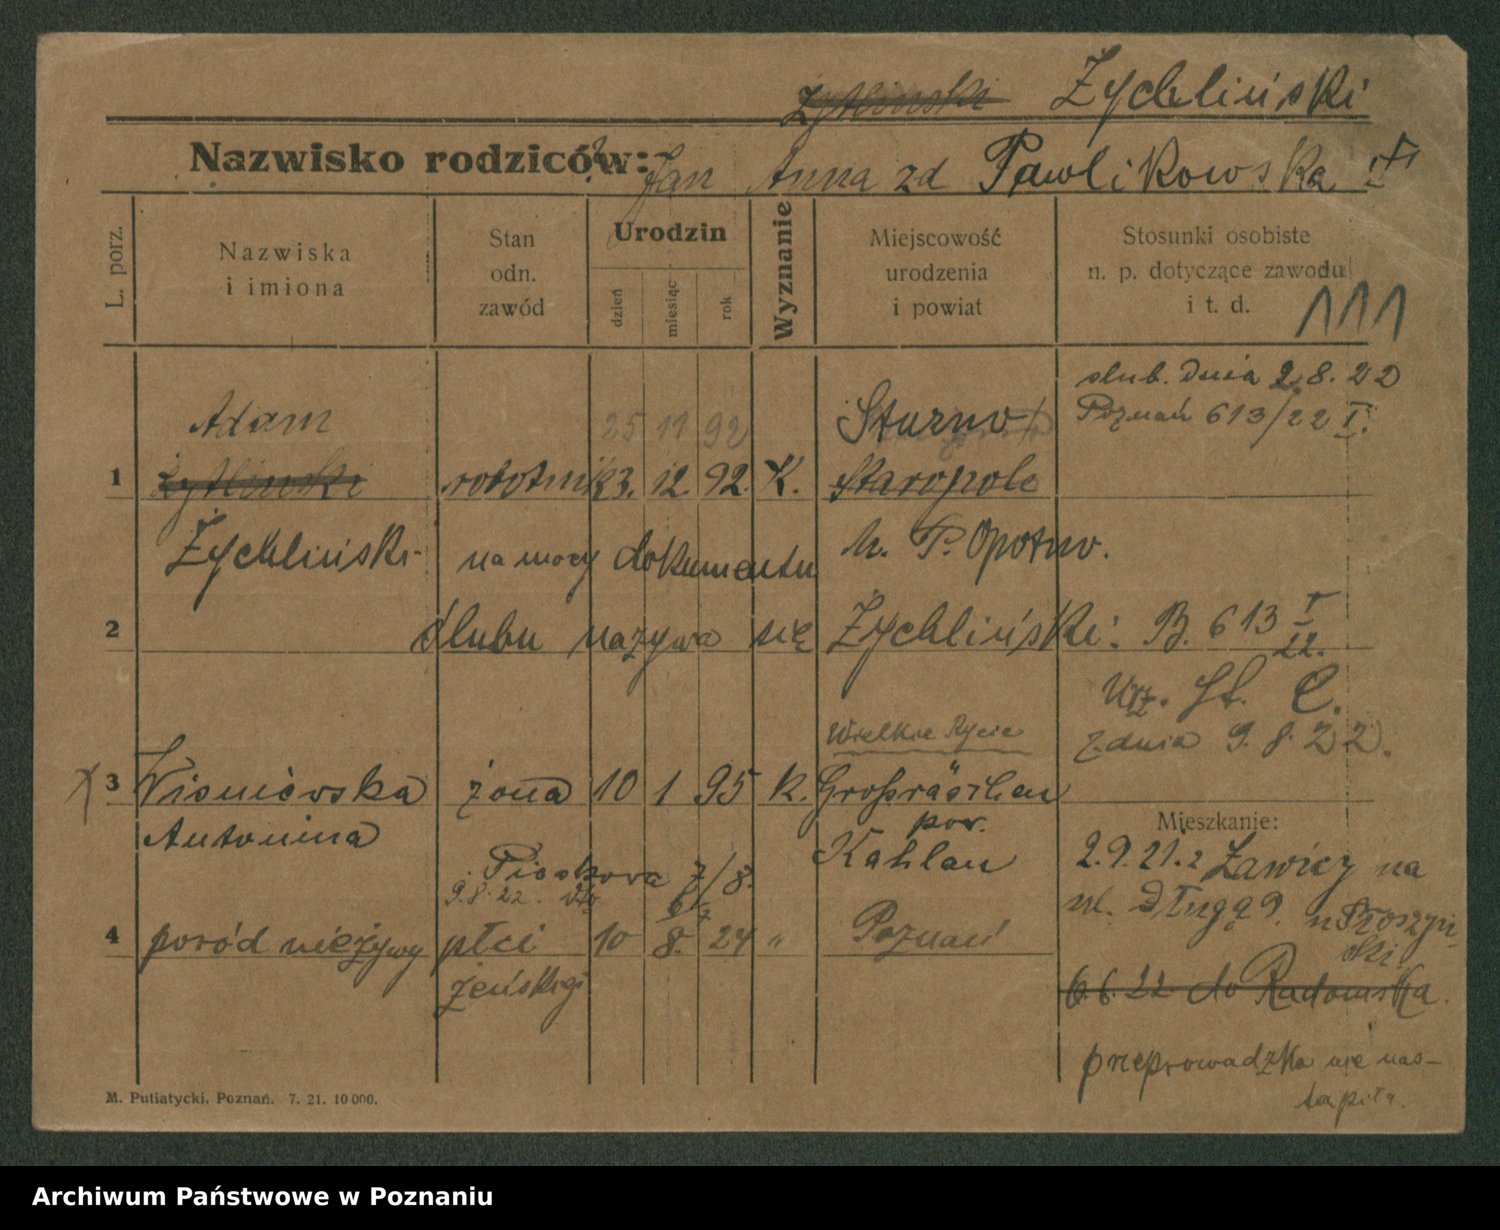 Żytliński Żychliński
Nazwisko rodziców: Jan Anna zd Pawlikowska
L. porz.
Nazwiska
i imiona
Stan
odn.
zawód
Urodzin
dzień
miesiąc
rok
Wyznanie
Miejscowość
urodzenia
i powiat
Stosunki osobiste
n. p. dotyczące zawodu
i t. d.
111
ślub. dnia 2.8.22
Poznań 613/22 I.
Adam
25 11 92
1 Żytliński robotnik 3. 12. 92. K. Staropole
Żychliński na mocy dokumentu
2 ślubu nazywa się Żychliński. B. 613 I
22.
Urz. St. C.
z dnia 9.8.22.
Wielkie
3 Wisniewska żona 10 1 95 K.
Antonina
pow.
Mieszkanie:
2.9.21. z Ławicy na
ul. Długą 9.
Piaskowa 7/8.
9.8.22.
4 poród nieżywy płci 10 8. 24 " Poznań
żeńskiej
6.6.22 do Radomska.
przeprowadzka nie nas-
tąpiła.
M. Putiatycki, Poznań. 7. 21. 10 000.
Archiwum Państwowe w Poznaniu